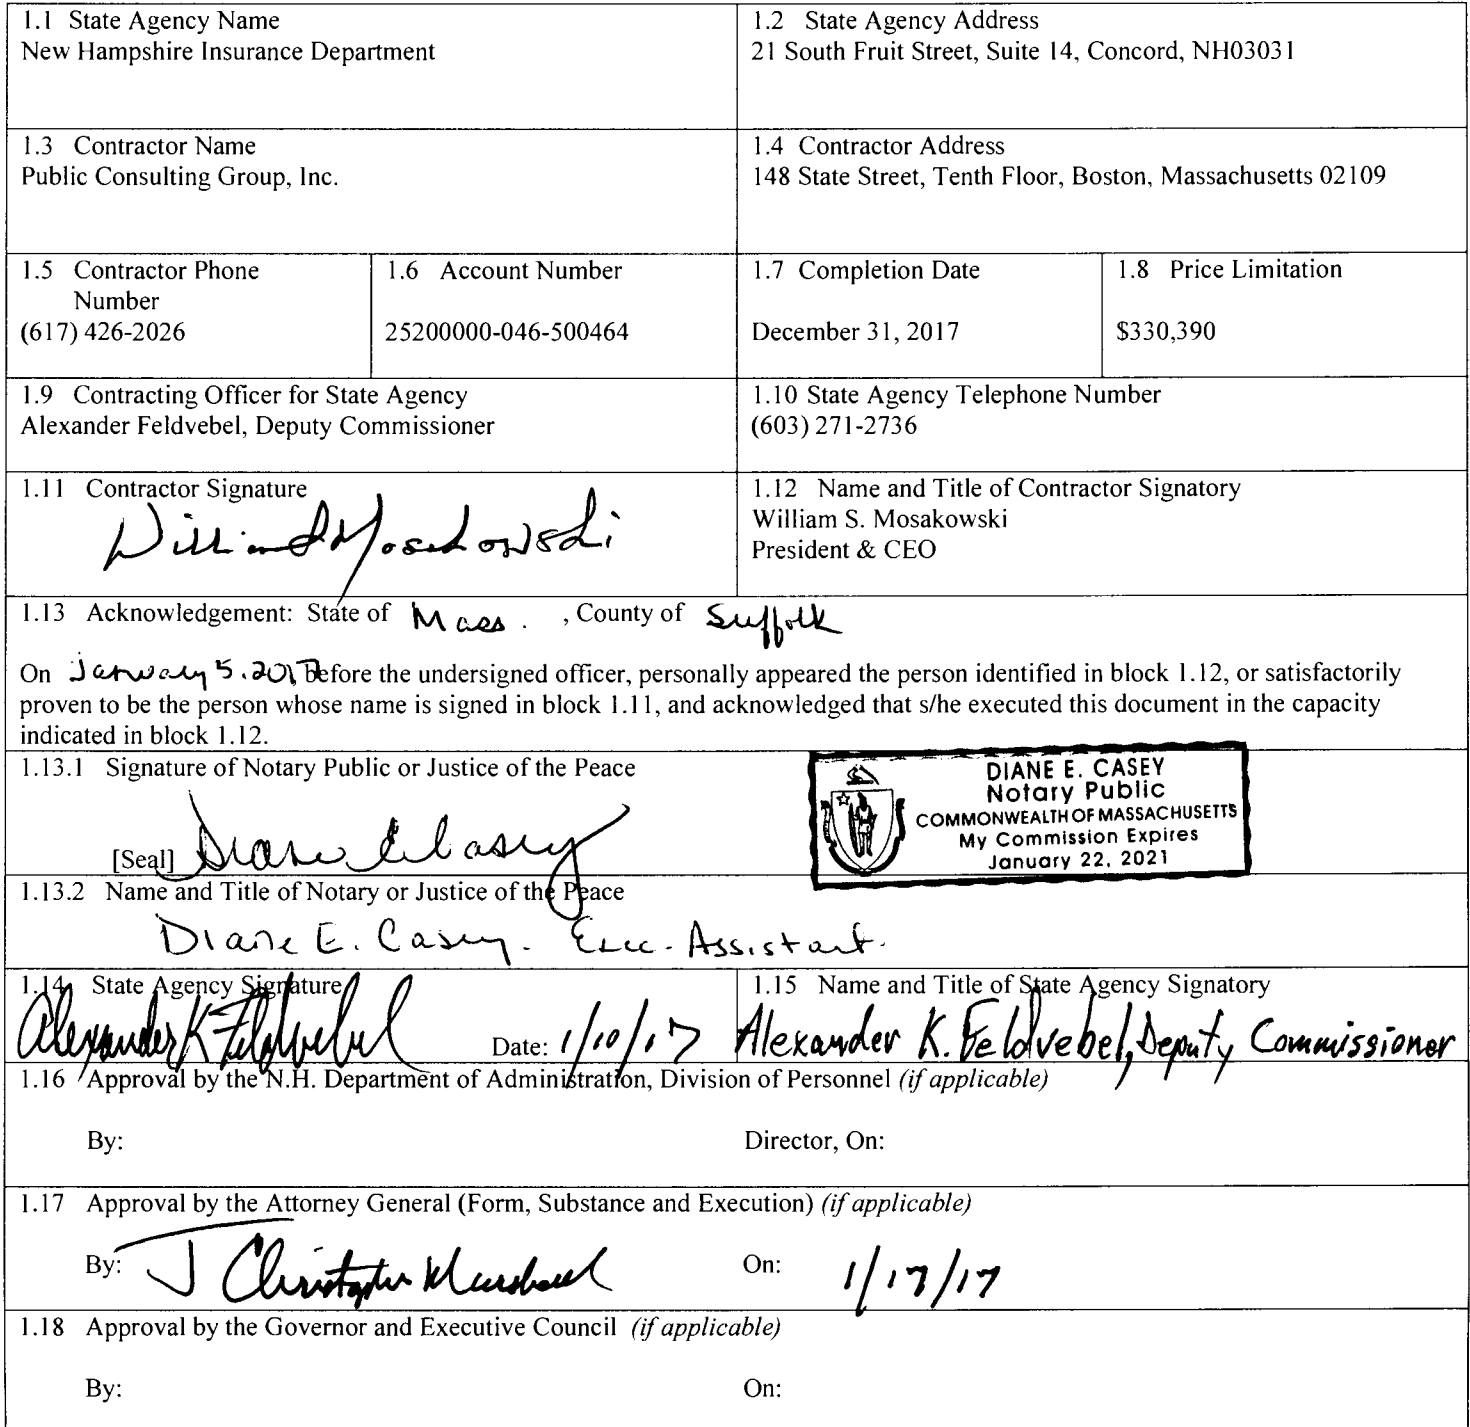 1.1 State Agency Name
New Hampshire Insurance Department
1.2 State Agency Address
21 South Fruit Street, Suite 14, Concord, NH03031
1.3 Contractor Name
Public Consulting Group, Inc.
1.4 Contractor Address
148 State Street, Tenth Floor, Boston, Massachusetts 02109
1.5 Contractor Phone
Number
(617) 426-2026
1.6 Account Number
25200000-046-500464
1.7 Completion Date
December 31, 2017
1.8 Price Limitation
$330,390
1.9 Contracting Officer for State Agency
Alexander Feldvebel, Deputy Commissioner
1.10 State Agency Telephone Number
(603) 271-2736
1.11 Contractor Signature
William S Mosakowski
1.12 Name and Title of Contractor Signatory
William S. Mosakowski
President & CEO
1.13 Acknowledgement: State of Mass. , County of Suffolk
On January 5, 2017 before the undersigned officer, personally appeared the person identified in block 1.12, or satisfactorily
proven to be the person whose name is signed in block 1.11, and acknowledged that s/he executed this document in the capacity
indicated in block 1.12.
1.13.1 Signature of Notary Public or Justice of the Peace
[Seal] Diane E Casey
DIANE E. CASEY
Notary Public
COMMONWEALTH OF MASSACHUSETTS
My Commission Expires
January 22, 2021
1.13.2 Name and Title of Notary or Justice of the Peace
Diane E. Casey. Exec. Assistant.
1.14 State Agency Signature
Alexander K Feldvebel Date: 1/10/17
1.15 Name and Title of State Agency Signatory
Alexander K. Feldvebel, Deputy Commissioner
1.16 Approval by the N.H. Department of Administration, Division of Personnel (if applicable)
By: Director, On:
1.17 Approval by the Attorney General (Form, Substance and Execution) (if applicable)
By: J Christopher Marshall On: 1/17/17
1.18 Approval by the Governor and Executive Council (if applicable)
By: On: